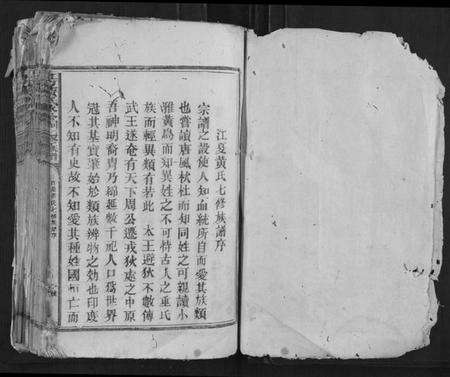 江夏黃氏七修族譜序
宗譜之設使人知血統所自而愛其族類
也嘗讀唐風杕杜而知同姓之可親讀小
雅黃鳥而知異姓之不可恃古人之重氏
族而輕異類有若此 太王避狄不數傳
武王遂奄有天下周公遷戎狄處之中原
吾神明裔胄乃綿延數千祀人口爲世界
冠其基實肇始於類族辨物之効也印度
人不知有史故不知愛其種姓國 亡而